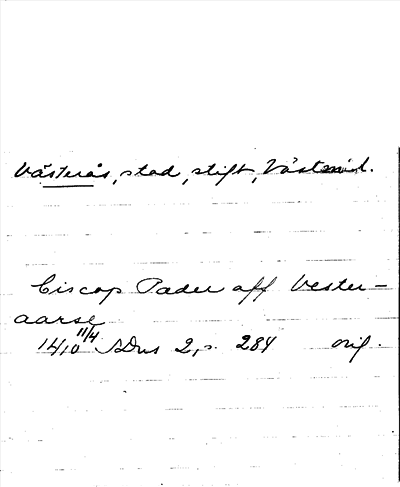 Västerås, stad, stift, Västmnl.
Biscop Pader aff Vester-
aarse
1410 11/4 SDns 2, s. 284 orig.